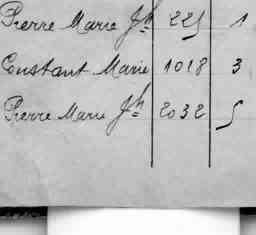 Pierre Marie Jh 225 1
Constant Marie 1018 3
Pierre Marie Jh 2032 5